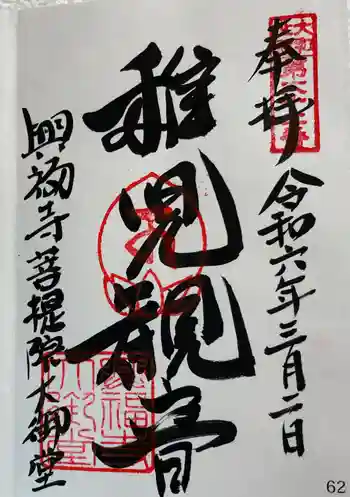 奉拝
令和六年三月二日
稚児観音
興福寺菩提院大御堂
62